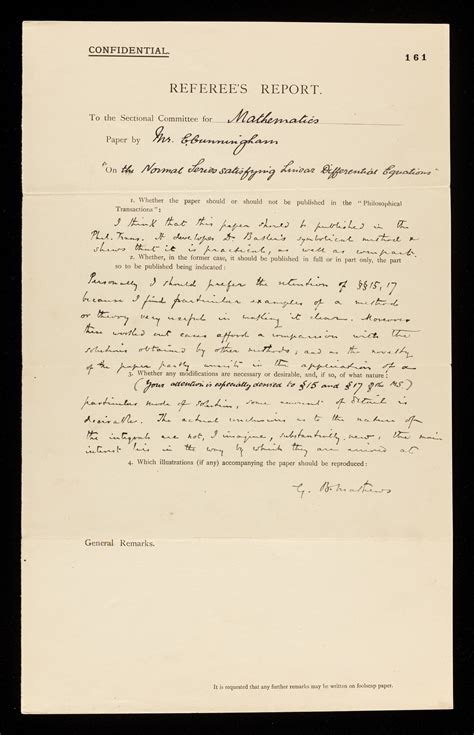 CONFIDENTIAL.
161
REFEREE'S REPORT.
To the Sectional Committee for Mathematics
Paper by Mr. E Cunningham
"On the Normal Series satisfying Linear Differential Equations"
1. Whether the paper should or should not be published in the "Philosophical
Transactions":
I think that this paper should be published in the
Phil. Trans. It developes Dr Baker's symbolical method &
shews that it is practical, as well as compact.
2. Whether, in the former case, it should be published in full or in part only, the part
so to be published being indicated:
Personally I should prefer the retention of §§15, 17
because I find particular examples of a method
or theory very useful in making it clear. Moreover
these worked out cases afford a comparison with the
solutions obtained by other methods; and as the novelty
of the paper partly consists in the application of a
3. Whether any modifications are necessary or desirable, and, if so, of what nature:
(Your attention is especially desired to §15 and §17 of the MS)
particular mode of solution, some amount of detail is
desirable. The actual conclusions as to the nature of
the integrals are not, I imagine, substantially new; the main
interest lies in the way by which they are arrived at
4. Which illustrations (if any) accompanying the paper should be reproduced:
G. B. Mathews
General Remarks.
It is requested that any further remarks may be written on foolscap paper.